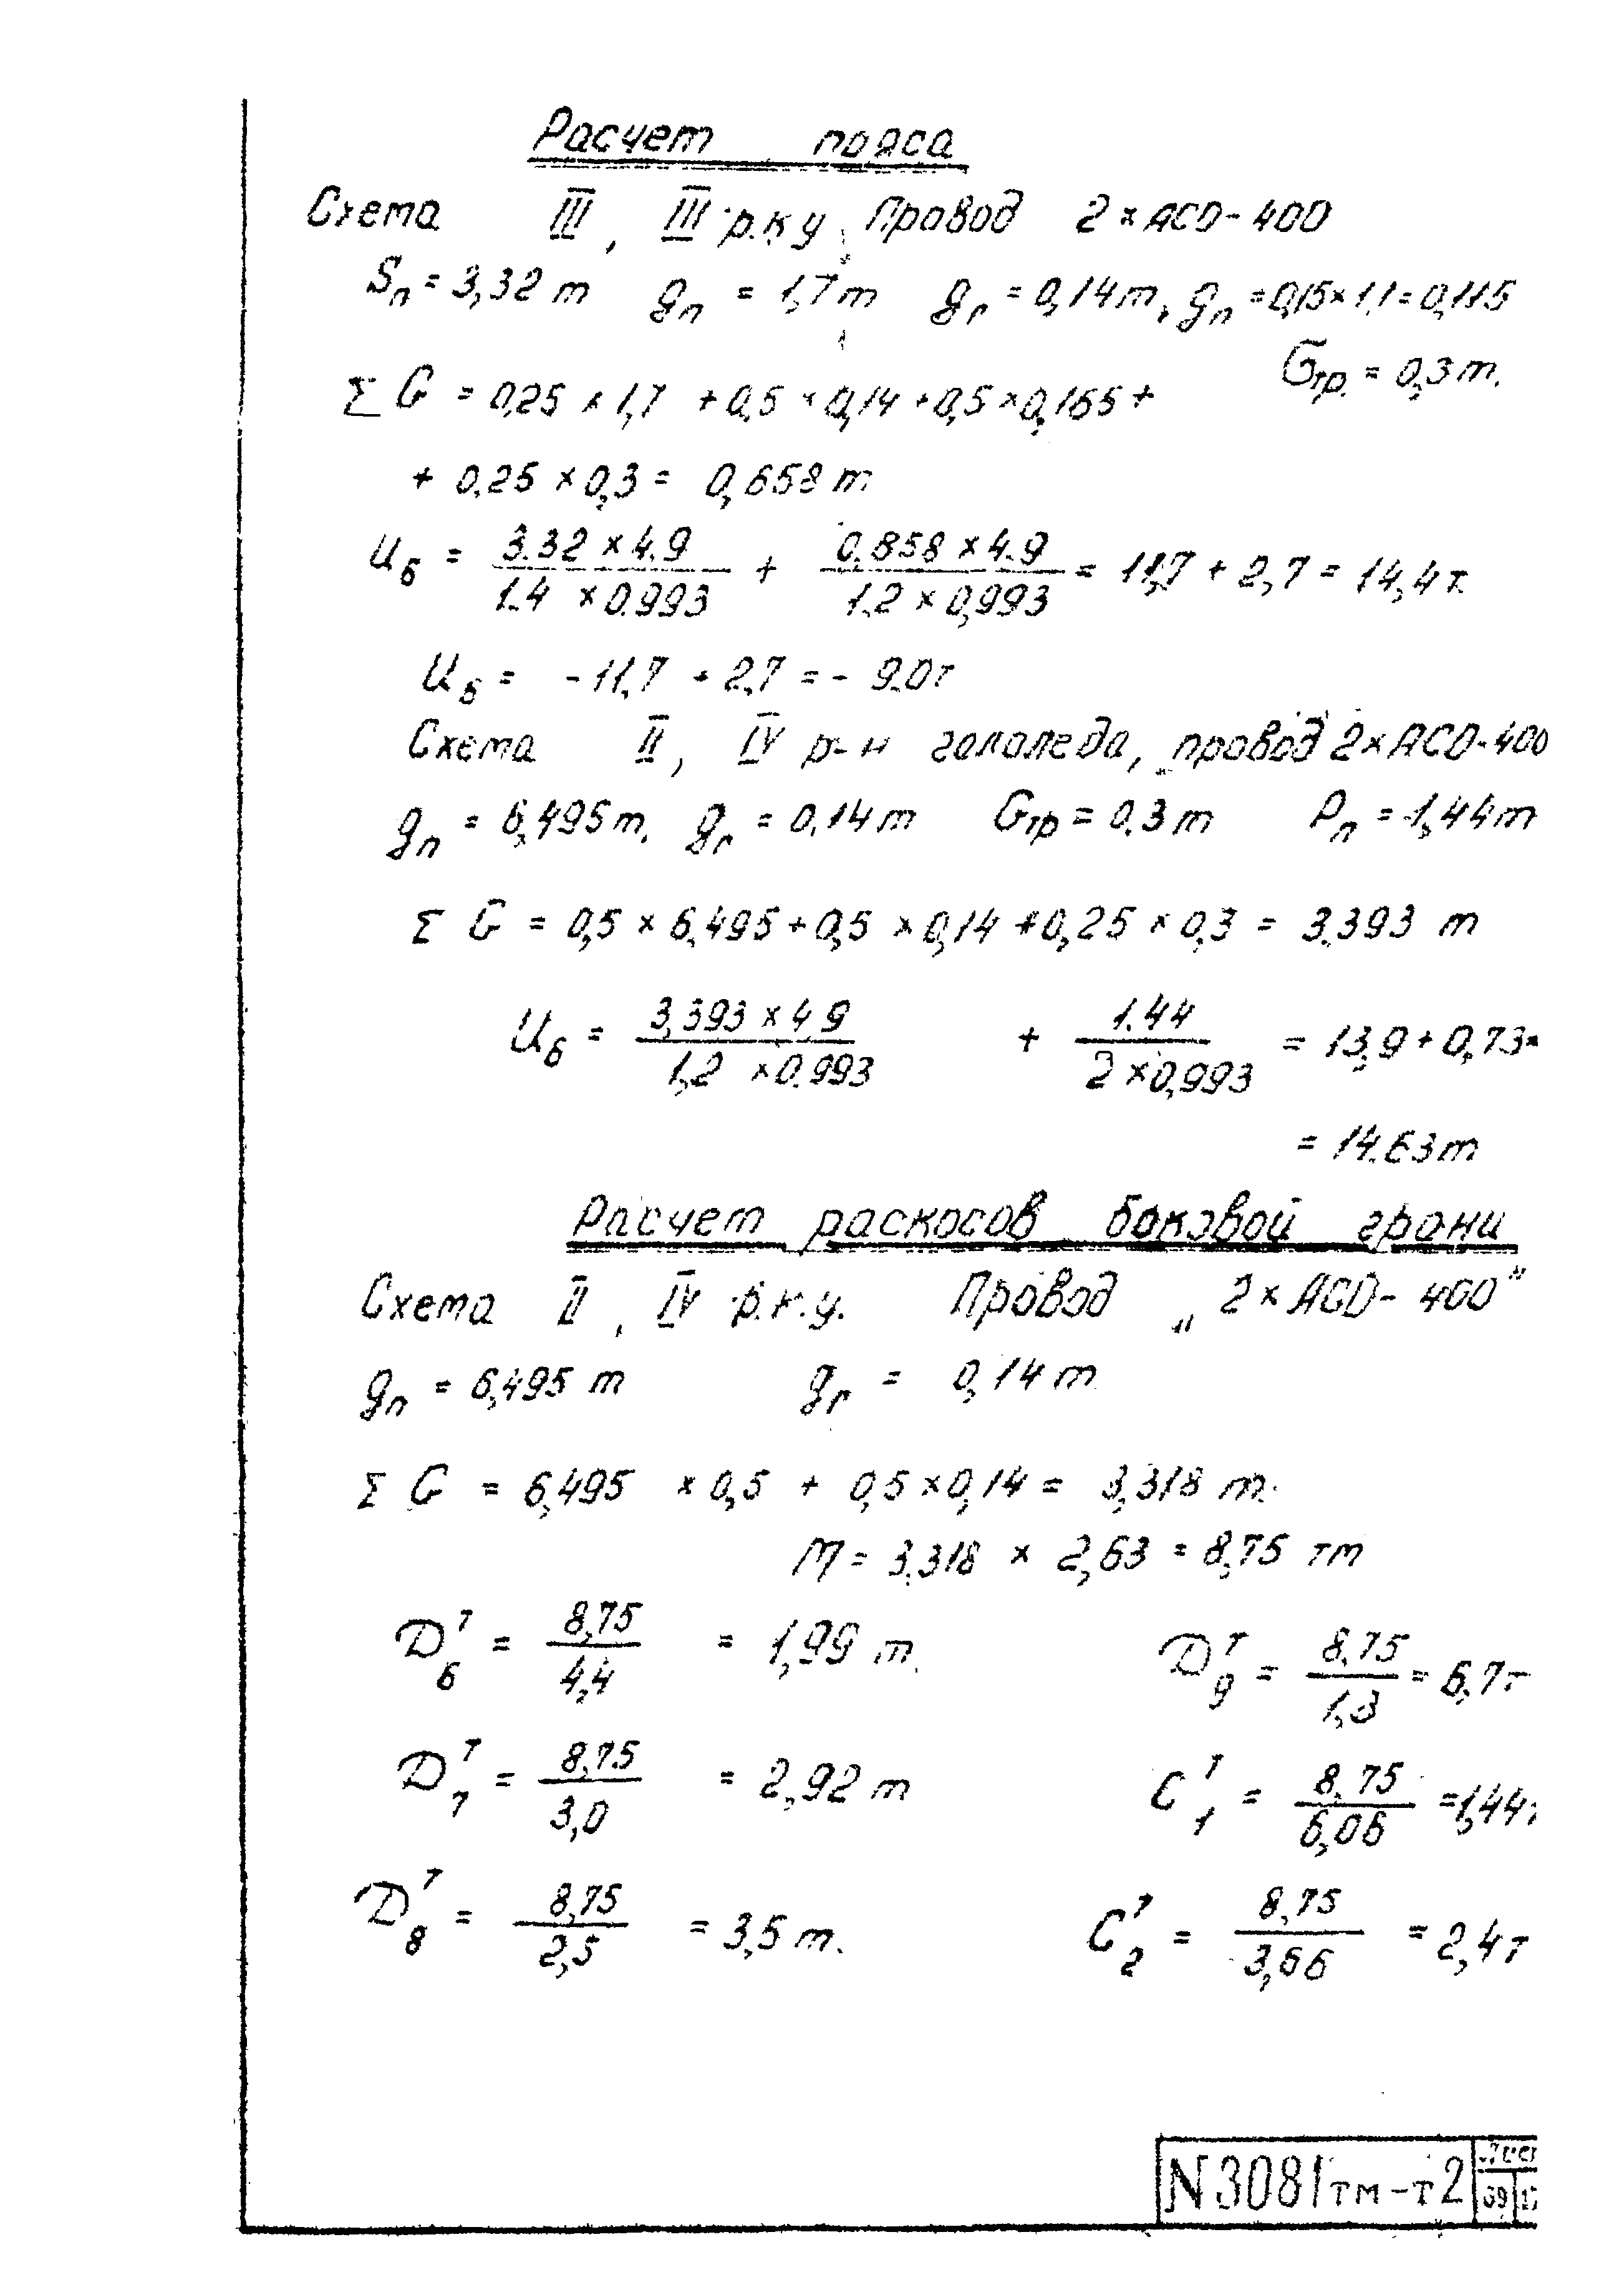 Расчет пояса
Схема III, III р.к.у. Провод 2×АСО-400
Sп = 3,32 т gп = 1,7 т gг = 0,14 т, gп = 0,15×1,1 = 0,115
Gтр. = 0,3 т.
Σ G = 0,25 × 1,7 + 0,5 × 0,14 + 0,5 × 0,165 +
+ 0,25 × 0,3 = 0,658 т
U6 = 3.32 × 4.9 / 1.4 × 0.993 + 0,858 × 4.9 / 1.2 × 0,993 = 11,7 + 2,7 = 14,4 т.
U6 = -11,7 + 2,7 = - 9.0т
Схема II, IV р-н гололеда, провод 2×АСО-400
gп = 6,495 т. gг = 0,14 т Gтр = 0,3 т Pп = 1,44 т
Σ G = 0,5 × 6,495 + 0,5 × 0,14 + 0,25 × 0,3 = 3.393 т
U6 = 3,393 × 4,9 / 1,2 × 0.993 + 1.44 / 2 × 0,993 = 13,9 + 0,73 =
= 14.63 т
Расчет раскосов боковой грани
Схема II, IV р.к.у. Провод „2×АСО-400"
gп = 6,495 т gг = 0,14 т
Σ G = 6,495 × 0,5 + 0,5 × 0,14 = 3,318 т.
M = 3,318 × 2,63 = 8,75 тм
D6ᵀ = 8,75 / 4,4 = 1,99 т. D9ᵀ = 8,75 / 1,3 = 6,7т
D7ᵀ = 8,75 / 3,0 = 2,92 т C1ᵀ = 8,75 / 6,06 = 1,44т
D8ᵀ = 8,75 / 2,5 = 3,5 т. C2ᵀ = 8,75 / 3,66 = 2,4т
N3081тм-т2